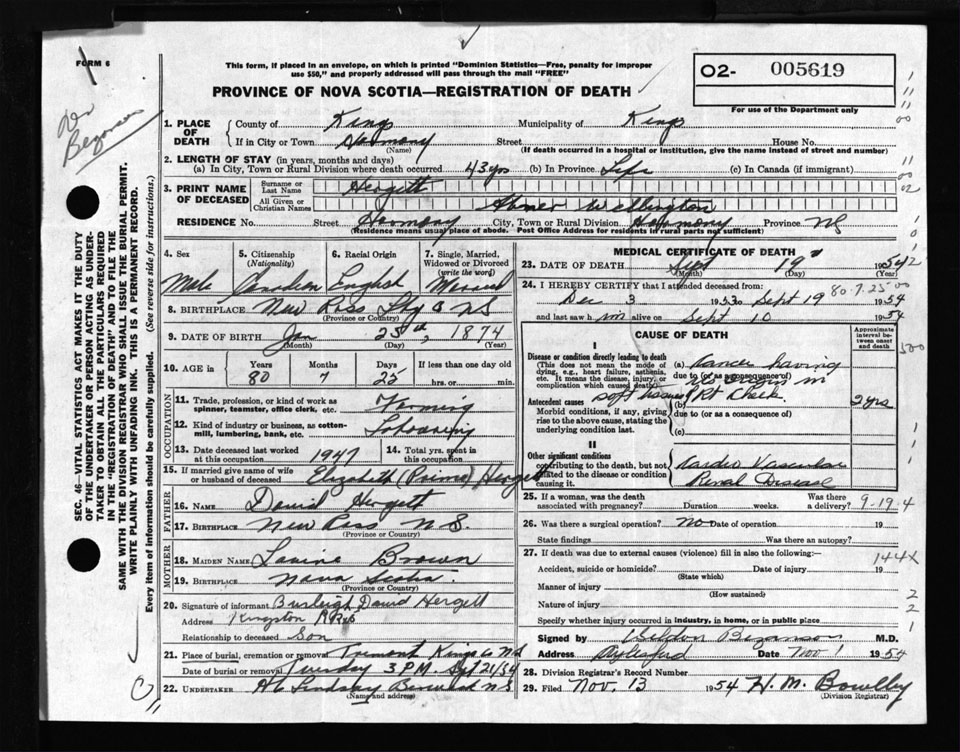 FORM 6
This form, if placed in an envelope, on which is printed "Dominion Statistics—Free, penalty for improper
use $50," and properly addressed will pass through the mail "FREE"
PROVINCE OF NOVA SCOTIA—REGISTRATION OF DEATH
02- 005619
For use of the Department only
Dr Bezanson
SEC. 46—VITAL STATISTICS ACT MAKES IT THE DUTY
OF THE UNDERTAKER OR PERSON ACTING AS UNDER-
TAKER TO OBTAIN ALL THE PARTICULARS REQUIRED
IN THE "REGISTRATION OF DEATH" AND TO FILE THE
SAME WITH THE DIVISION REGISTRAR WHO SHALL ISSUE THE BURIAL PERMIT.
WRITE PLAINLY WITH UNFADING INK. THIS IS A PERMANENT RECORD.
Every item of information should be carefully supplied. (See reverse side for instructions.)
1. PLACE OF DEATH County of Kings Municipality of Kings
If in City or Town Harmony Street House No.
(Name) (If death occurred in a hospital or institution, give the name instead of street and number)
2. LENGTH OF STAY (in years, months and days)
(a) In City, Town or Rural Division where death occurred 43 yrs (b) In Province Life (c) In Canada (if immigrant)
3. PRINT NAME OF DECEASED Surname or Last Name Hergett
All Given or Christian Names Wellington
RESIDENCE No. Street Harmony City, Town or Rural Division Harmony Province NS
(Residence means usual place of abode. Post Office Address for residents in rural parts not sufficient)
4. Sex 5. Citizenship (Nationality) 6. Racial Origin 7. Single, Married, Widowed or Divorced (write the word)
Male Canadian English Married
8. BIRTHPLACE New Ross NS
(Province or Country)
9. DATE OF BIRTH Jan 25th, 1874
(Month) (Day) (Year)
10. AGE in Years Months Days If less than one day old
80 7 25 hrs. or min.
OCCUPATION
11. Trade, profession, or kind of work as spinner, teamster, office clerk, etc. Farming
12. Kind of industry or business, as cotton-mill, lumbering, bank, etc.
13. Date deceased last worked at this occupation 1947 14. Total yrs. spent in this occupation
15. If married give name of wife or husband of deceased Elizabeth (Prime) Hergett
FATHER
16. Name David Hergett
17. Birthplace New Ross N.S.
(Province or Country)
MOTHER
18. Maiden Name Brown
19. Birthplace Nova Scotia
(Province or Country)
20. Signature of informant Burleigh David Hergett
Address Kingston
Relationship to deceased Son
21. Place of burial, cremation or removal Tremont Kings Co NS
Date of burial or removal Tuesday 3 P.M. Sept 21/54
22. Undertaker Lindsay Berwick NS
(Name and address)
MEDICAL CERTIFICATE OF DEATH
23. DATE OF DEATH Sept 19 1954
(Month) (Day)
24. I HEREBY CERTIFY that I attended deceased from: 80-7-25
Dec 3 1953 to Sept 19 1954
and last saw him alive on Sept 10 1954
CAUSE OF DEATH
Approximate interval between onset and death
I
Disease or condition directly leading to death
(This does not mean the mode of dying, e.g., heart failure, asthenia, etc. It means the disease, injury, or complication which caused death)
(a) Cancer having
due to (or as consequence of)
its origin in
soft tissues Rt Cheek. 2 yrs
Antecedent causes
Morbid conditions, if any, giving rise to the above cause, stating the underlying condition last.
(b)
due to (or as a consequence of)
(c)
II
Other significant conditions
contributing to the death, but not related to the disease or condition causing it.
Cardio Vascular
Renal Disease
25. If a woman, was the death associated with pregnancy? Duration weeks. Was there a delivery? 9-19-4
26. Was there a surgical operation? No Date of operation 19
State findings Was there an autopsy?
27. If death was due to external causes (violence) fill in also the following:—
144X
Accident, suicide or homicide? Date of injury 19
(State which)
Manner of injury
(How sustained)
Nature of injury
Specify whether injury occurred in industry, in home, or in public place
Signed by Weldon Bezanson M.D.
Address Aylesford Date Nov 1 1954
28. Division Registrar's Record Number
29. Filed Nov. 13 1954 H. M. Bowlby
(Division Registrar)